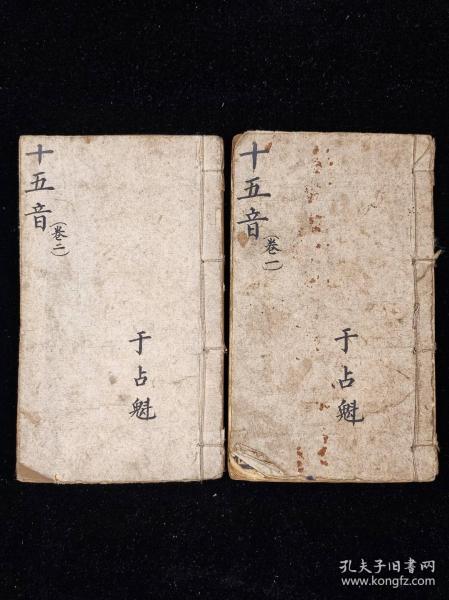 十五音(卷一)
于占魁
十五音(卷二)
于占魁
孔夫子旧书网
www.kongfz.com